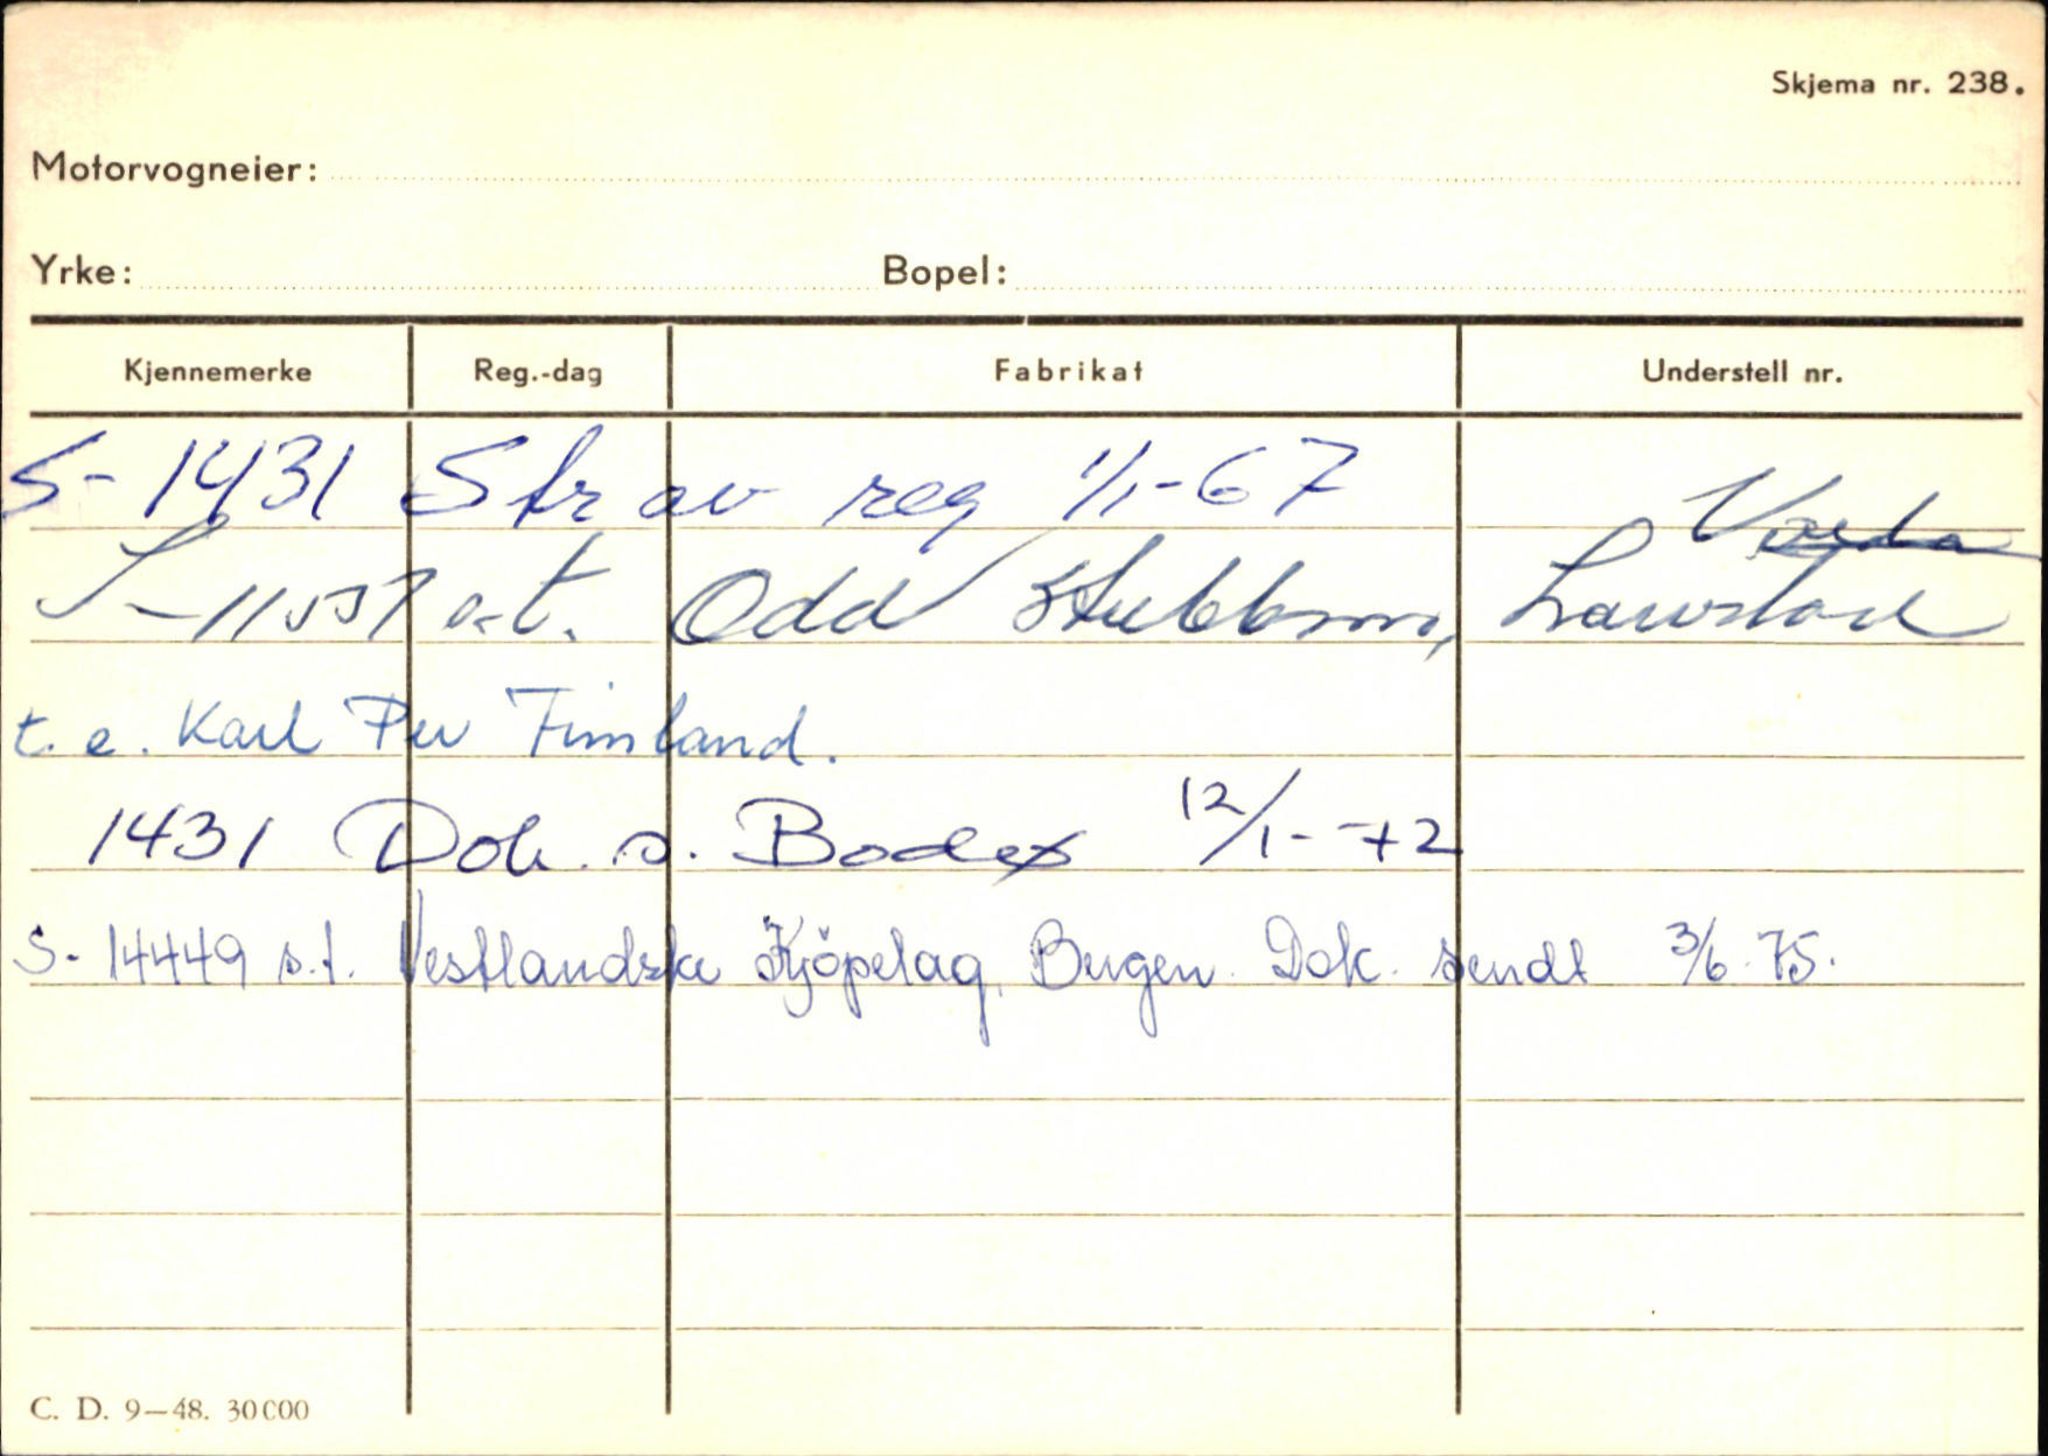 Skjema nr. 238.
Motorvogneier:
Yrke: Bopel:
Kjennemerke Reg.-dag Fabrikat Understell nr.
S-1431 Str av reg 1/1-67
S- a.t. Odd
t.e. Karl Per Fimland.
1431 Dok. s. Bodex 12/1-72
S-14449 s.t. Vestlandske Kjöpelag, Bergen. Dok. sendt 3/6.75.
C. D. 9—48. 30000